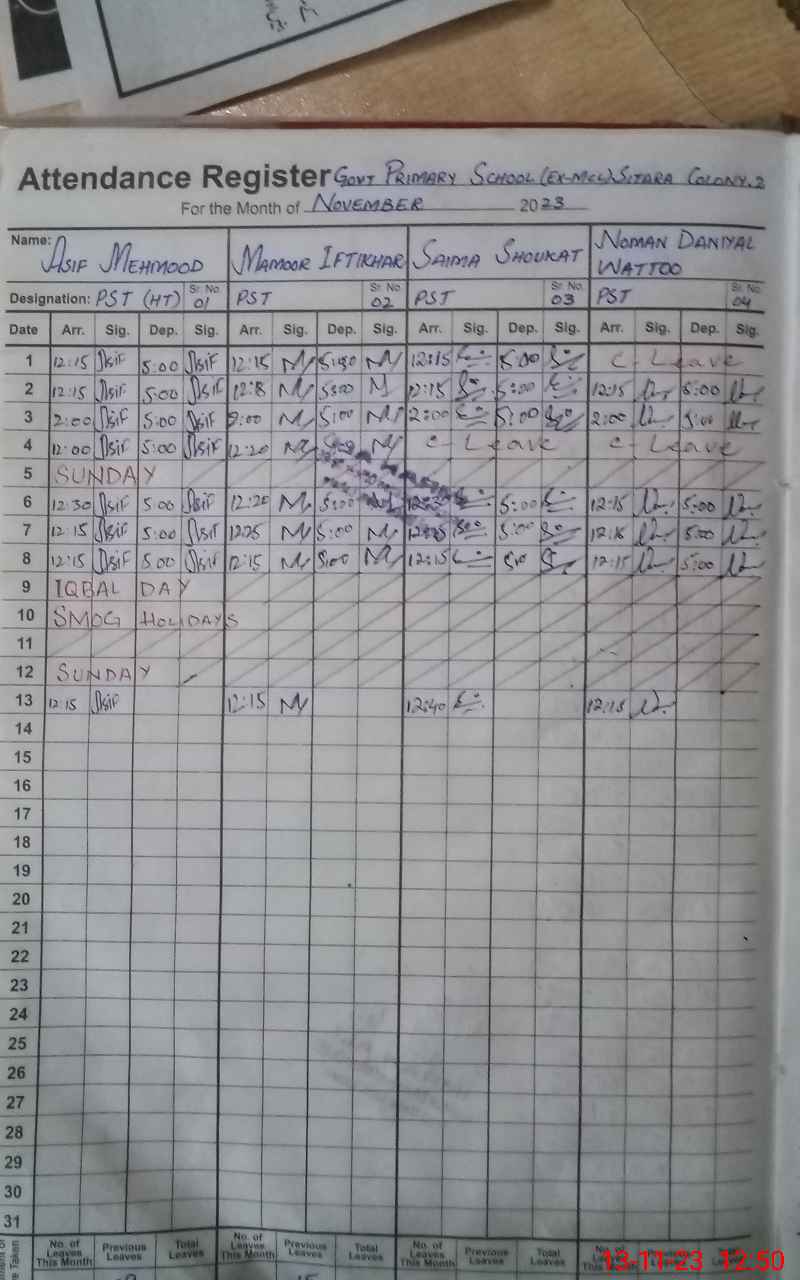 Attendance Register GOVT PRIMARY SCHOOL (EX-MCL) SITARA COLONY.2
For the Month of NOVEMBER 2023
Name: ASIF MEHMOOD MAMOOR IFTIKHAR SAIMA SHOUKAT NOMAN DANIYAL WATTOO
Designation: PST (HT) Sr. No. 01 PST Sr. No. 02 PST Sr. No. 03 PST Sr. No. 04
Date Arr. Sig. Dep. Sig. Arr. Sig. Dep. Sig. Arr. Sig. Dep. Sig. Arr. Sig. Dep. Sig.
1 12:15 Asif 5:00 Asif 12:15 M M 12:15 5:00 C- Leave
2 12:15 Asif 5:00 Asif M 5:00 M 12:15 5:00 12:15 5:00
3 2:00 Asif 5:00 Asif 2:00 M 5:00 M 2:00 5:00 2:00 5:00
4 12:00 Asif 5:00 Asif 12:20 M M C- Leave C- Leave
5 SUNDAY
6 12:30 Asif 5:00 Asif 12:20 M 5:00 5:00 12:15 5:00
7 12:15 Asif 5:00 Asif M 5:00 M 5:00 5:00
8 12:15 Asif 5.00 Asif 12:15 M 5:00 M 12:15 12:15 5:00
9 IQBAL DAY
10 SMOG HOLIDAYS
11
12 SUNDAY
13 12:15 Asif 12:15 M 12:40 12:15
14
15
16
17
18
19
20
21
22
23
24
25
26
27
28
29
30
31
No. of Leaves This Month Previous Leaves Total Leaves No. of Leaves This Month Previous Leaves Total Leaves No. of Leaves This Month Previous Leaves Total Leaves
13-11-23 12:50